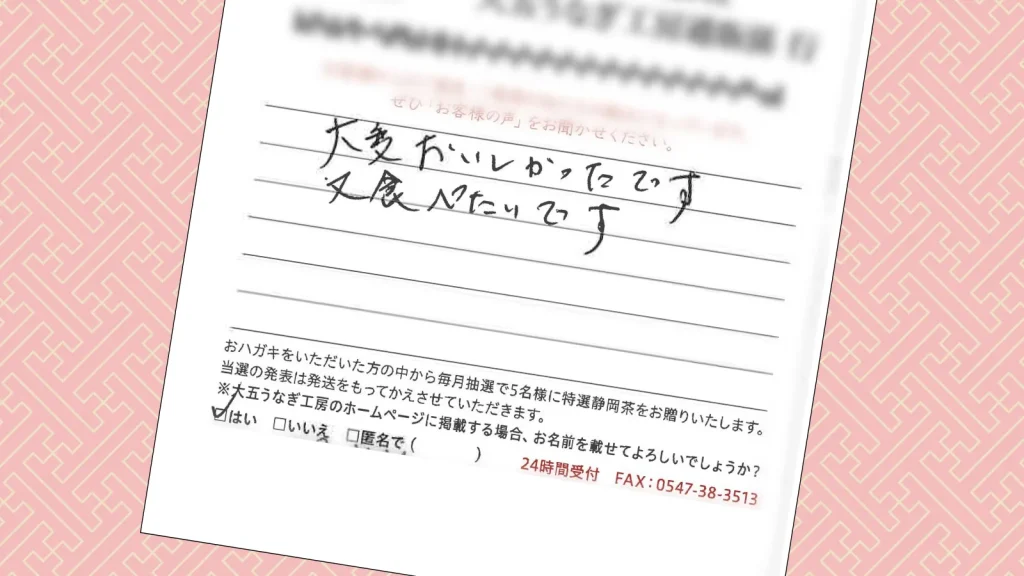 大五うなぎ工房通販係 行
ぜひ「お客様の声」をお聞かせください。
大変おいしかったです
又食べたいです
おハガキをいただいた方の中から毎月抽選で5名様に特選静岡茶をお贈りいたします。
当選の発表は発送をもってかえさせていただきます。
※大五うなぎ工房のホームページに掲載する場合、お名前を載せてよろしいでしょうか?
☑はい □いいえ □匿名で( )
24時間受付 FAX:0547-38-3513